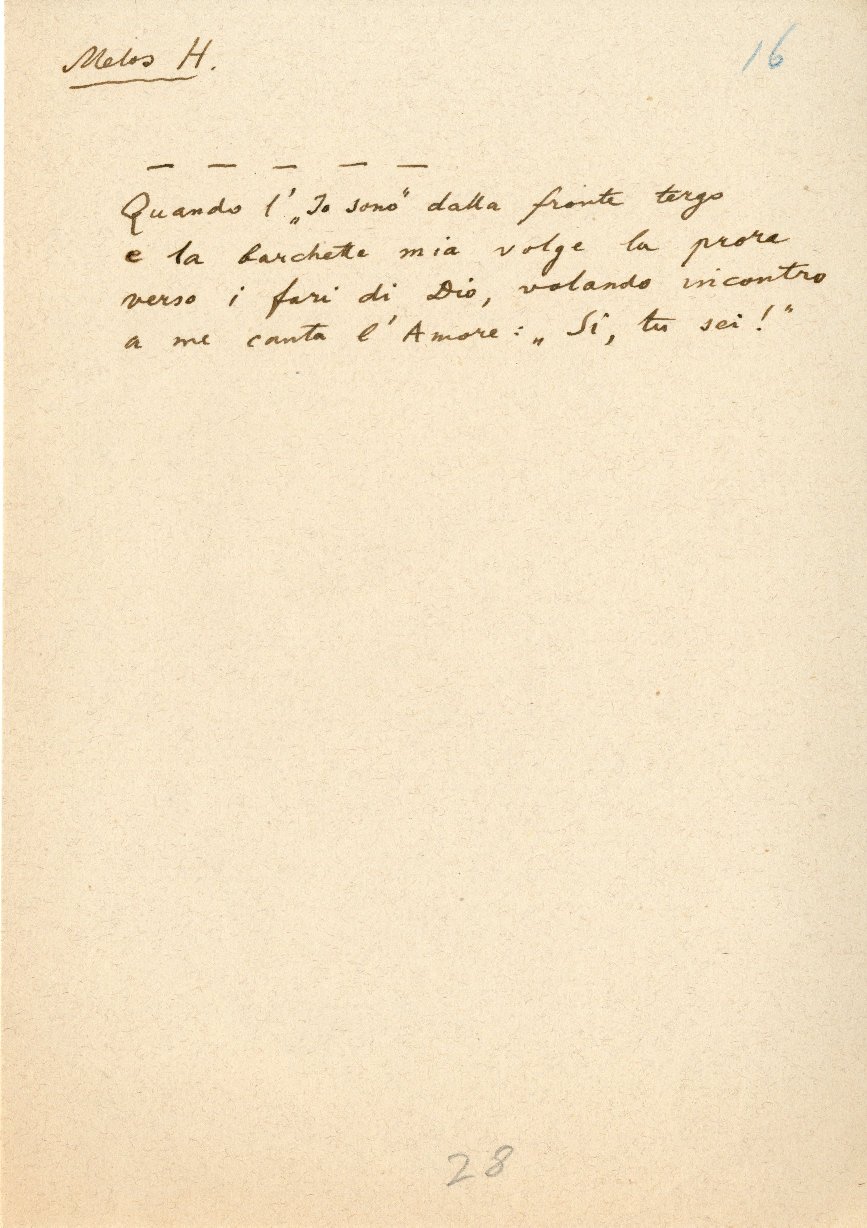 Melos H.
16
— — — — —
Quando l' „Io sono" dalla fronte tergo
e la barchetta mia volge la prora
verso i fari di Dio, volando incontro
a me canta l'Amore: „Si, tu sei!"
28